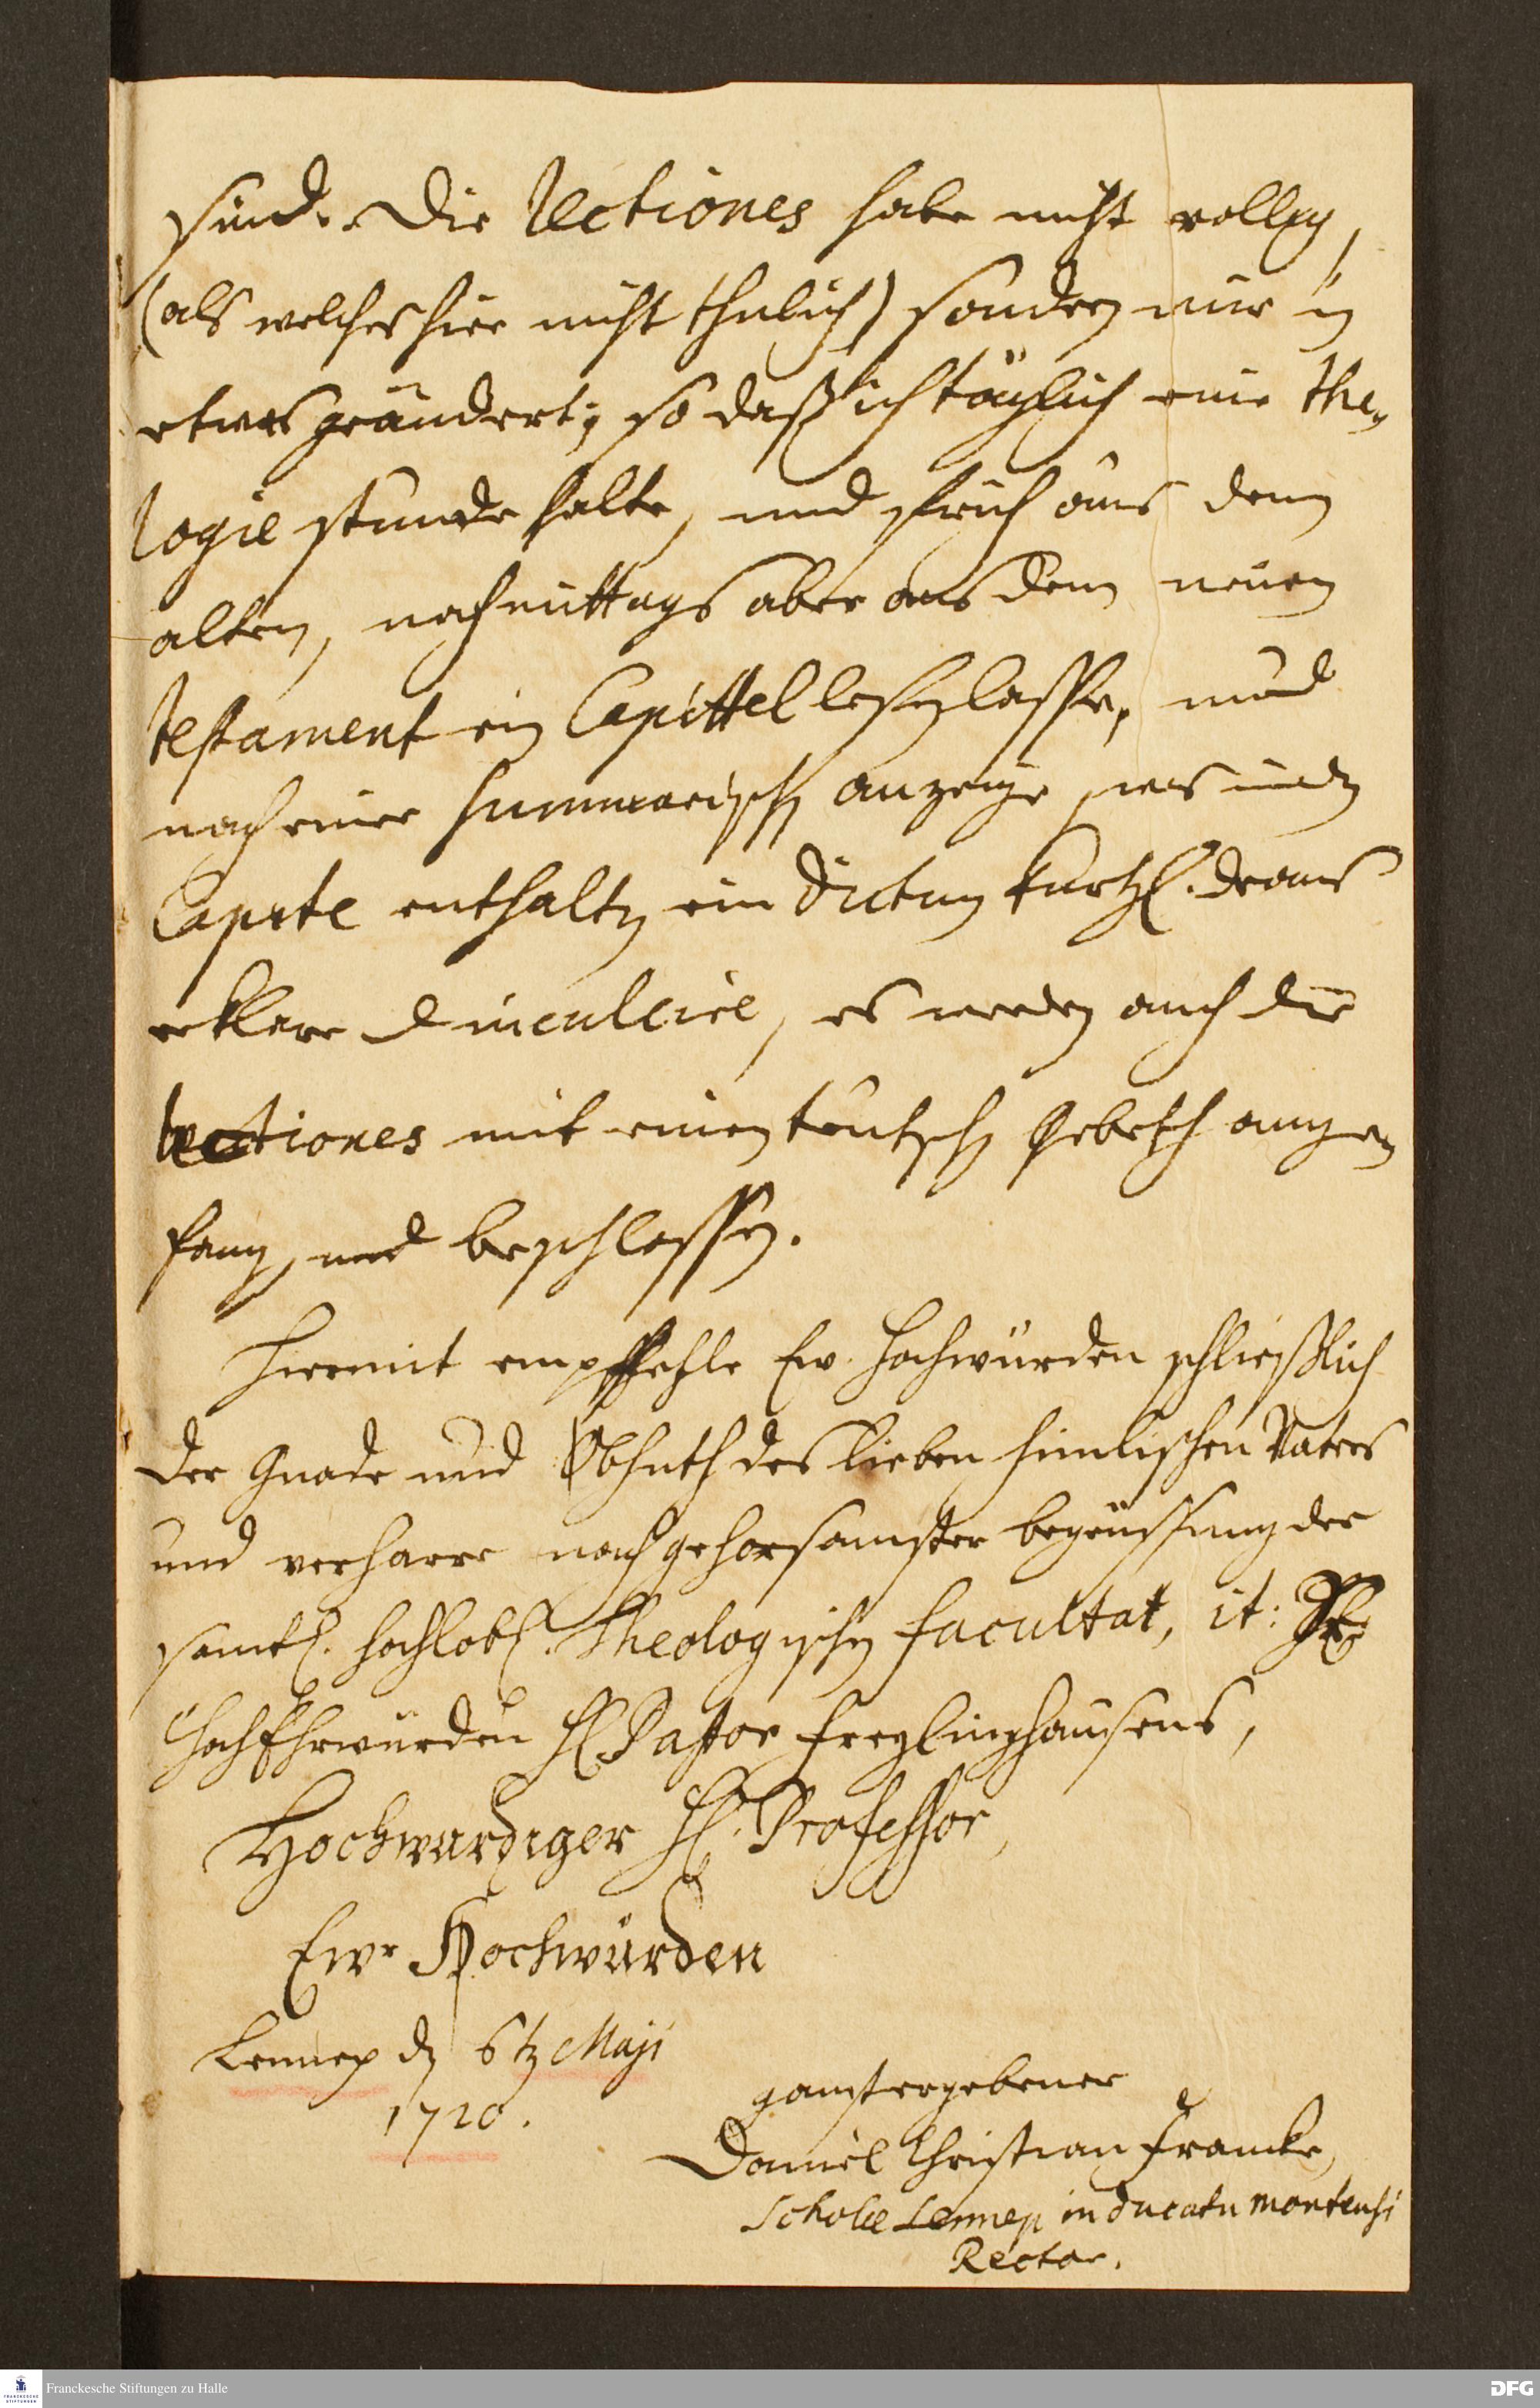 sind. Die Lectiones habe nicht völlig,
(als welches hier nicht thulich) sondern nur in
etwas geändert; so daß ich täglich eine Theo-
logie stunde halte, und früh aus dem
alten, nachmittags aber aus dem neuen
Testament ein Capittel lesen lasse, und
nach einer summarischen anzeige, was in dem
Capite enthalten ein dictum kurtzl. draus
erklere & inculcire, es werden auch die
Lectiones mit einem teutschen Gebeth ange-
fang, und beschlossen.
Hiermit empfehle Ew. Hochwürden schließlich
der Gnade und Obhuth des lieben himlischen Vaters
und verharre nach gehorsamster begrüssung der
sämtl. hochlobl. Theologischen facultät, it: Sr.
HochEhrwürden H. Pastor Freylinghausens,
Hochwürdiger H. Professor,
Ewr Hochwürden
Lennep den 6ten Maji
1720.
gantz ergebener
Daniel Christian Francke,
Scholæ Lennep in ducatu montensi
Rector.
Franckesche Stiftungen zu Halle
DFG